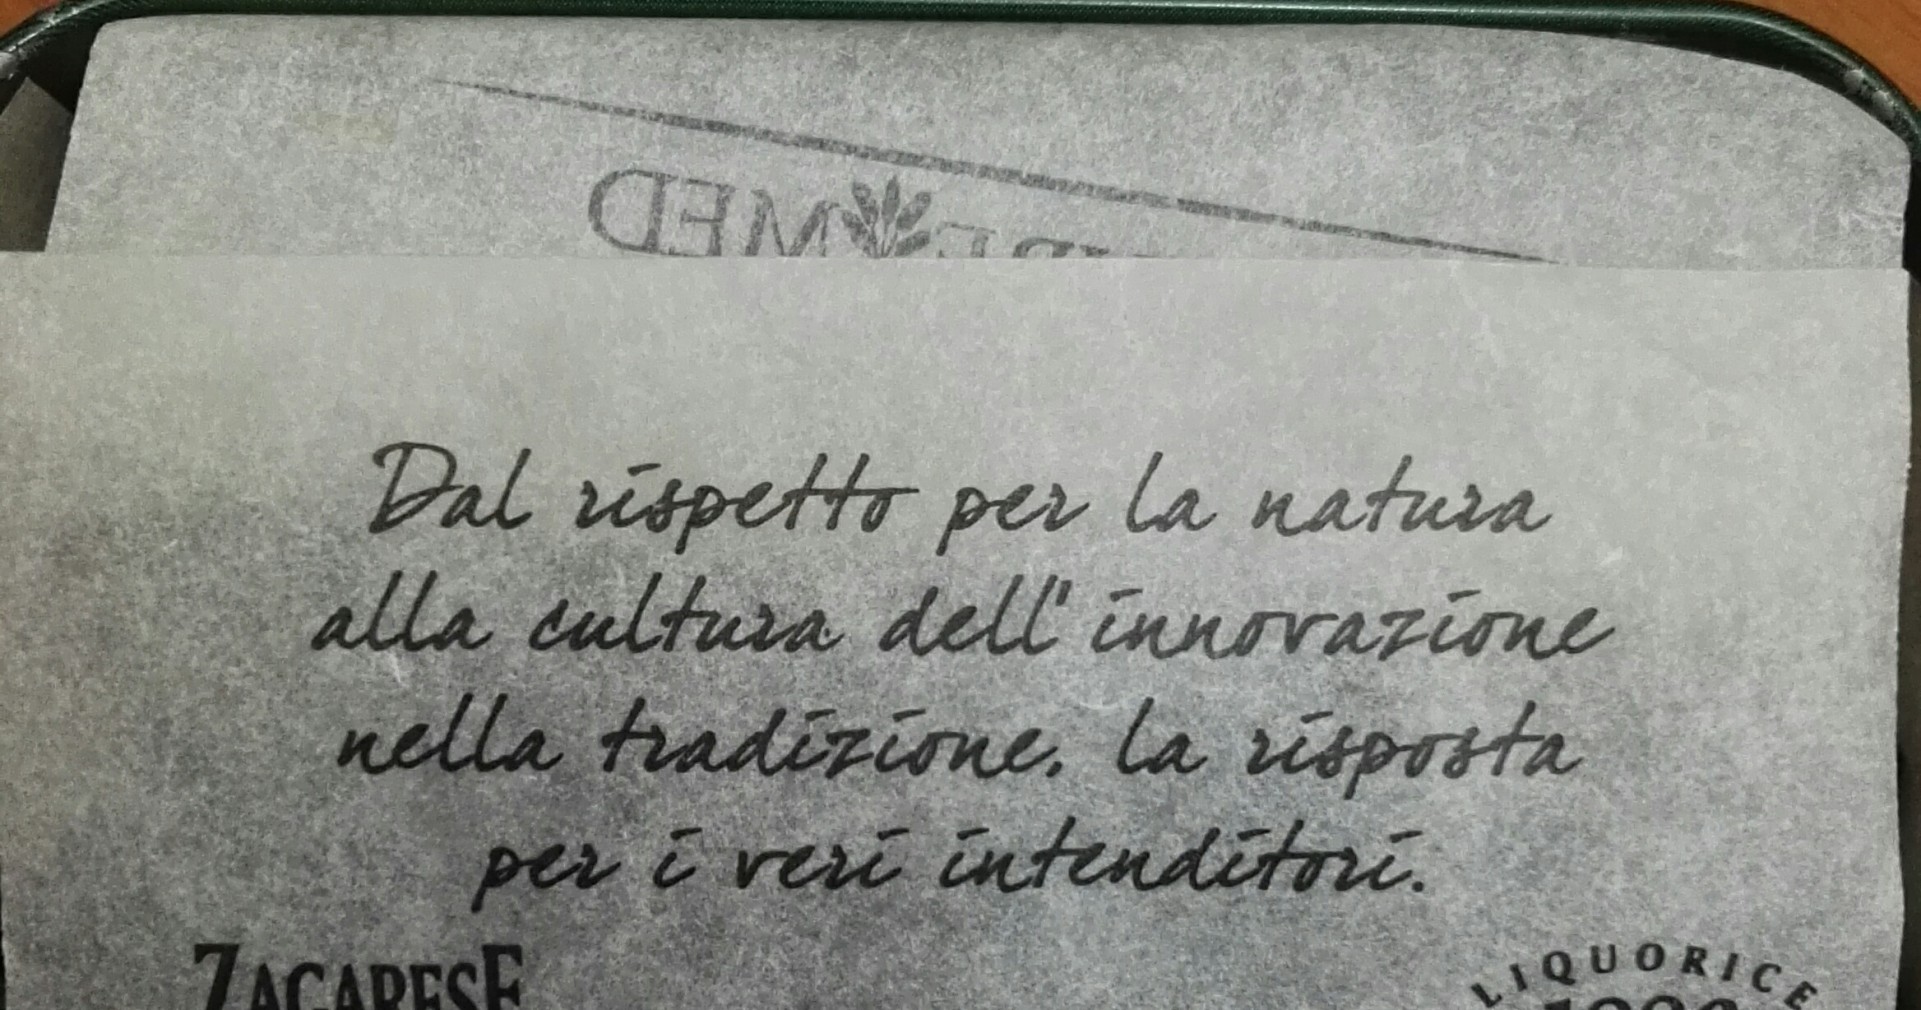 Dal rispetto per la natura
alla cultura dell'innovazione
nella tradizione. la risposta
per i veri intenditori.
ZAGARESE
LIQUORICE